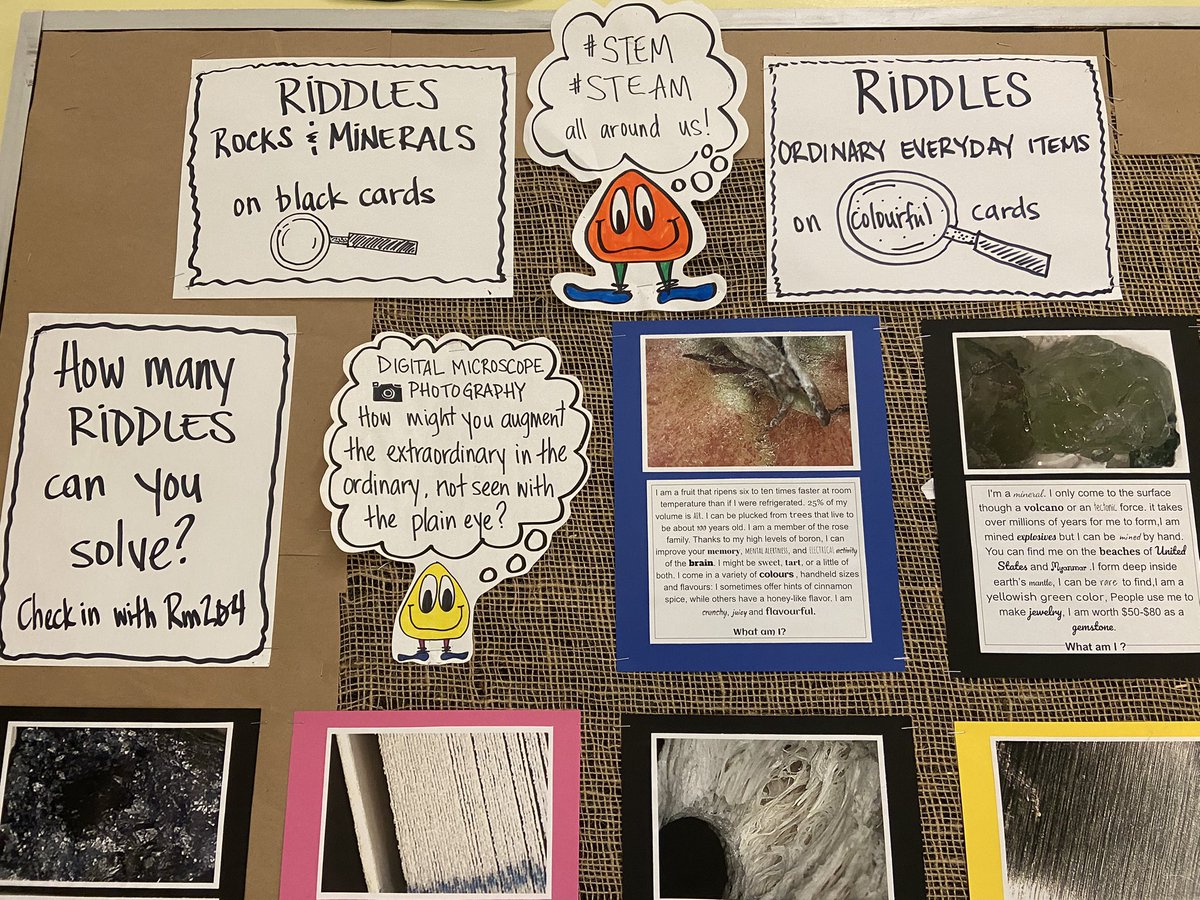 RiDDLES
ROCKS & MiNERALS
on black cards
#STEM
#STEAM
all around us!
RiDDLES
ORDINARY EVERYDAY ITEMS
on colourful cards
How many
RiDDLES
can you
solve?
Check in with Rm204
DIGITAL MICROSCOPE
PHOTOGRAPHY
How might you augment
the extraordinary in the
ordinary, not seen with
the plain eye?
I am a fruit that ripens six to ten times faster at room
temperature than if I were refrigerated. 25% of my
volume is air. I can be plucked from trees that live to
be about 100 years old. I am a member of the rose
family. Thanks to my high levels of boron, I can
improve your memory, MENTAL ALERTNESS, and ELECTRICAL activity
of the brain. I might be sweet, tart, or a little of
both. I come in a variety of colours, handheld sizes
and flavours: I sometimes offer hints of cinnamon
spice, while others have a honey-like flavor. I am
crunchy, juicy and flavourful.
What am I?
I'm a mineral. I only come to the surface
though a volcano or an tectonic force. it takes
over millions of years for me to form,I am
mined explosives but I can be mined by hand.
You can find me on the beaches of United
States and Myanmar .I form deep inside
earth's mantle, I can be rare to find,I am a
yellowish green color, People use me to
make jewelry, I am worth $50-$80 as a
gemstone.
What am I ?